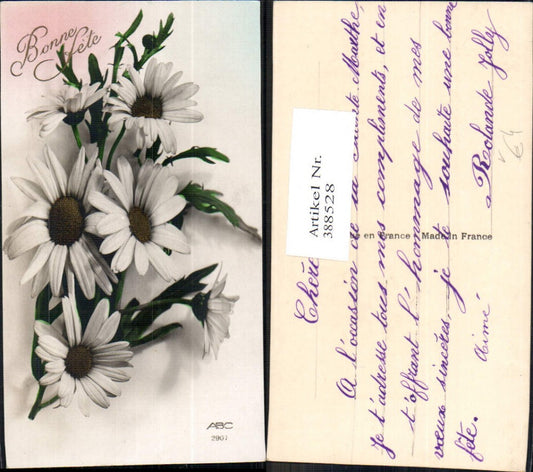 Bonne
fête
ABC
2901
Artikel Nr.
388528
en France - Made in France
Chère
A l'occasion de ta Sainte Marthe,
je t'adresse tous mes compliments, et en
t'offrant l'hommage de mes
vœux sincères je te souhaite une bonne
fête.
Aimé
Rolande Jolly